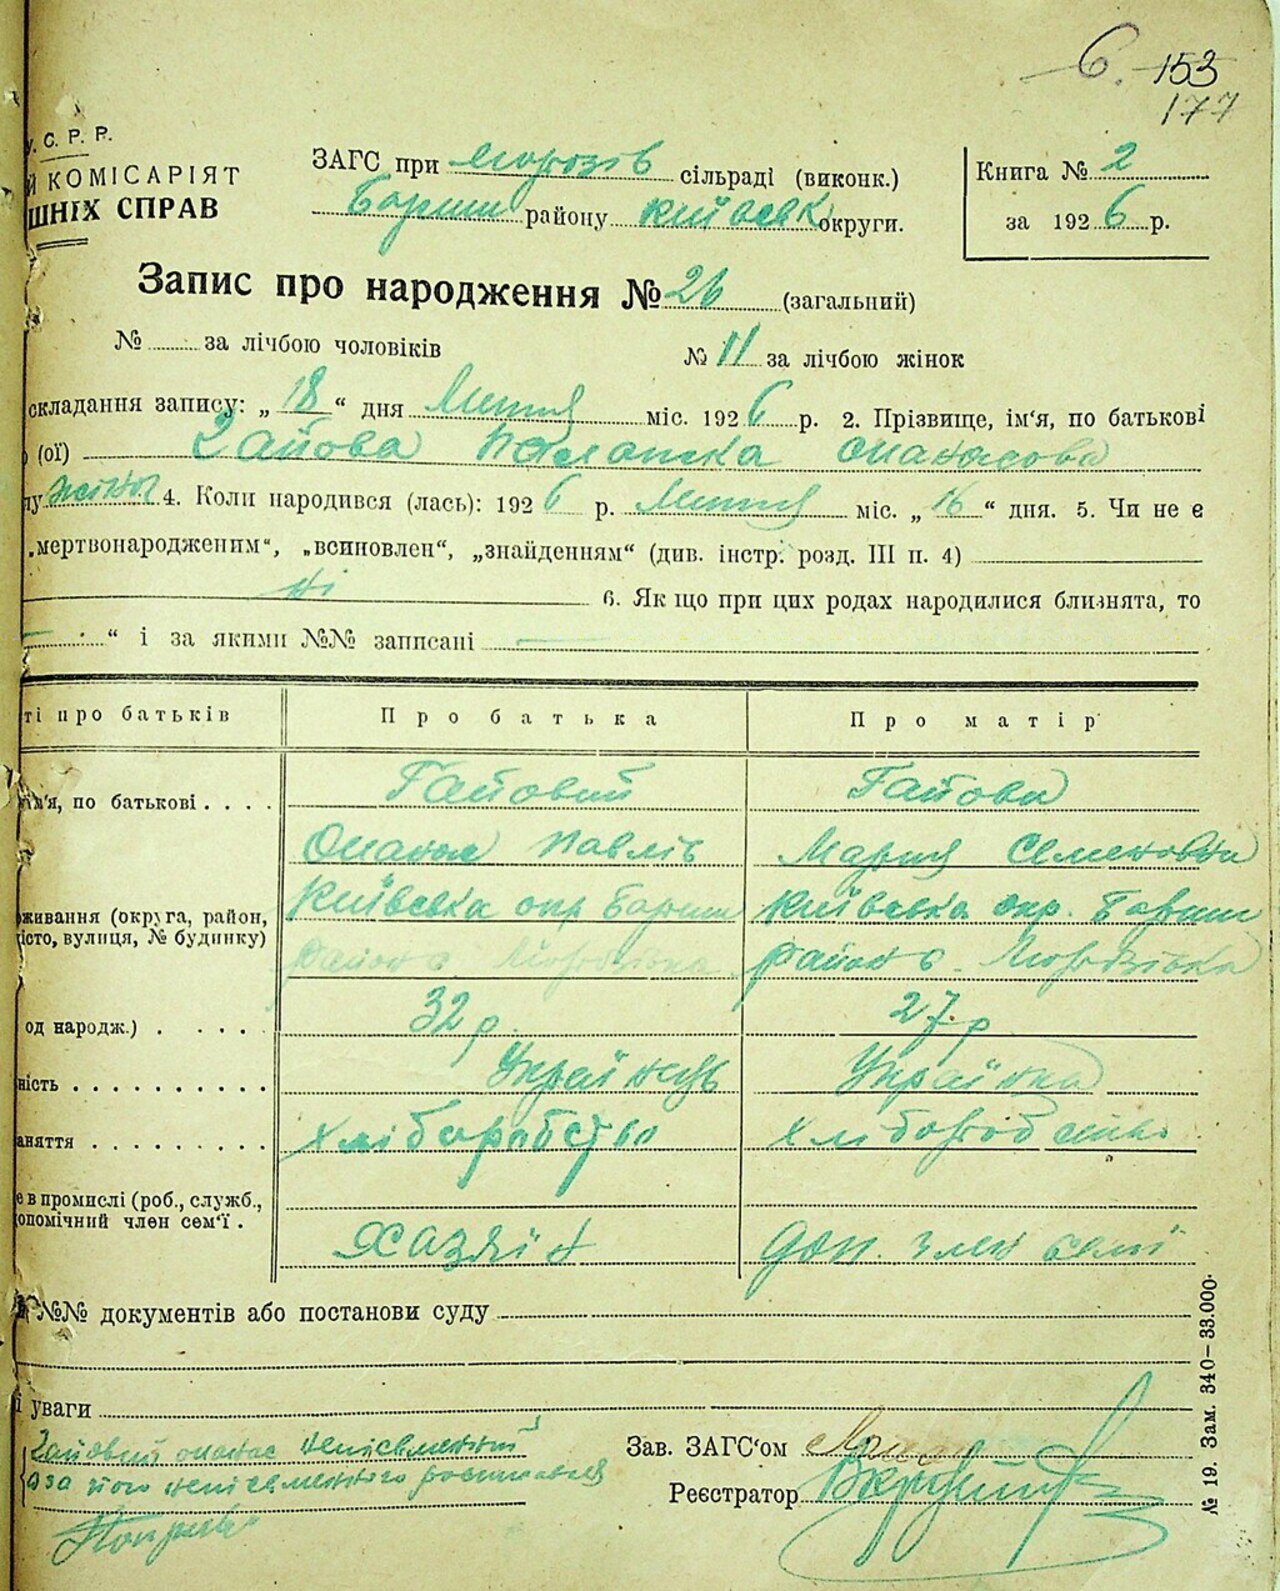 6. 153
177
У. С. Р. Р.
Й КОМІСАРІЯТ
ШНІХ СПРАВ
ЗАГС при Морозів сільраді (виконк.)
Бориш району Київськ округи.
Книга № 2
за 1926 р.
Запис про народження № 26 (загальний)
№ за лічбою чоловіків № 11 за лічбою жінок
складання запису: „18“ дня Липня міс. 1926 р. 2. Прізвище, ім'я, по батькові
(ої) Гайова Палашка Опанасова
лу жіноч 4. Коли народився (лась): 1926 р. Липня міс. „16“ дня. 5. Чи не є
„мертвонародженим“, „всиновлен“, „знайденням“ (див. інстр. розд. III п. 4)
ні 6. Як що при цих родах народилися близнята, то
“ і за якими №№ записані
ті про батьків Про батька Про матір
ім'я, по батькові . . . . Гайовий Гайова
Опанас Павлів Мария Семеновна
живання (округа, район, Київська окр Бориш Київська окр. Бориш
істо, вулиця, № будинку) район с. Морозівка район с. Морозівка
од народж.) . . . . . 32 р. 27 р
ність . . . . . . . . . . Українець Українка
аняття . . . . . . . . . Хліборобство Хліборобство
е в промислі (роб., служб.,
опомічний член сем'ї . Хазяїн доп. член семї
№№ документів або постанови суду
і уваги
Гайовий опанас неписьменний
а за його неписьменного росписався
Зав. ЗАГС'ом
Реєстратор
№ 19. Зам. 340—33.000.